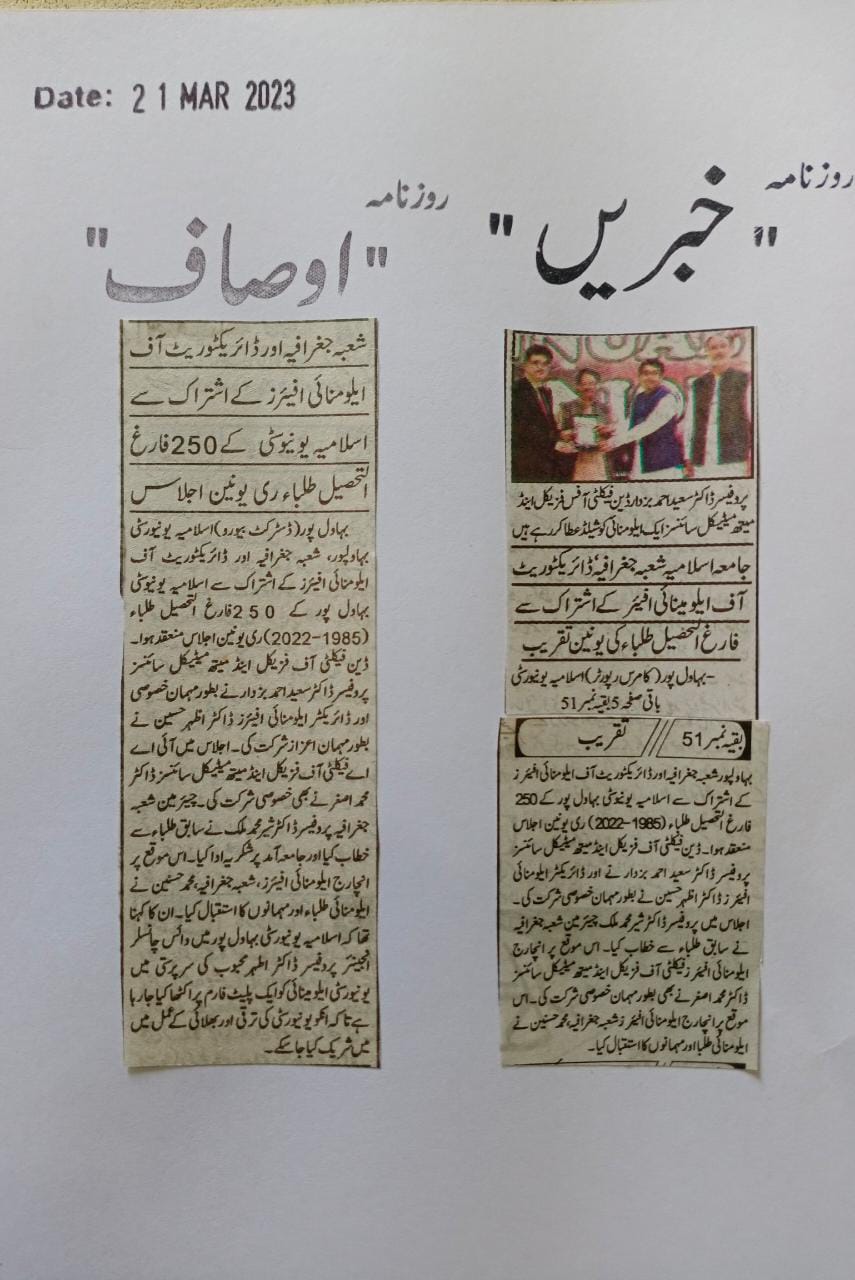 Date: 21 MAR 2023
روزنامہ
"خبریں"
پروفیسر ڈاکٹر سعید احمد بزدار ڈین فیکلٹی آفس فزیکل اینڈ
میتھ میٹیکل سائنسز ایک ایلومنائی کو شیلڈ عطا کر رہے ہیں
جامعہ اسلامیہ شعبہ جغرافیہ، ڈائریکٹوریٹ
آف ایلومینائی افیئر کے اشتراک سے
فارغ التحصیل طلباء کی یونین تقریب
بہاول پور (کامرس رپورٹر) اسلامیہ یونیورسٹی
باقی صفحہ 5 بقیہ نمبر 51
بقیہ نمبر 51 تقریب
بہاولپور شعبہ جغرافیہ اور ڈائریکٹوریٹ آف ایلومنائی افیئرز
کے اشتراک سے اسلامیہ یونیوسٹی بہاول پور کے 250
فارغ التحصیل طلباء (1985-2022) ری یونین اجلاس
منعقد ہوا۔ ڈین فیکلٹی آف فزیکل اینڈ میتھ میٹیکل سائنسز
پروفیسر ڈاکٹر سعید احمد بزدار نے اور ڈائریکٹر ایلومنائی
افیئرز ڈاکٹر اظہر حسین نے بطور مہمان خصوصی شرکت کی۔
اجلاس میں پروفیسر ڈاکٹر شیر محمد ملک چیئرمین شعبہ جغرافیہ
نے سابق طلباء سے خطاب کیا۔ اس موقع پر انچارج
ایلومنائی افیئرز فیکلٹی آف فزیکل اینڈ میتھ میٹیکل سائنسز
ڈاکٹر محمد اصغر نے بھی بطور مہمان خصوصی شرکت کی۔ اس
موقع پر انچارج ایلومنائی افیئرز شعبہ جغرافیہ، محمد حسنین نے
ایلومنائی طلبا اور مہمانوں کا استقبال کیا۔
روزنامہ
"اوصاف"
شعبہ جغرافیہ اور ڈائریکٹوریٹ آف
ایلومنائی افیئرز کے اشتراک سے
اسلامیہ یونیوسٹی کے 250 فارغ
التحصیل طلباء ری یونین اجلاس
بہاول پور (ڈسٹرکٹ بیورو) اسلامیہ یونیورسٹی
بہاولپور، شعبہ جغرافیہ اور ڈائریکٹوریٹ آف
ایلومنائی افیئرز کے اشتراک سے اسلامیہ یونیوسٹی
بہاول پور کے 250 فارغ التحصیل طلباء
(1985-2022) ری یونین اجلاس منعقد ہوا۔
ڈین فیکلٹی آف فزیکل اینڈ میتھ میٹیکل سائنسز
پروفیسر ڈاکٹر سعید احمد بزدار نے بطور مہمان خصوصی
اور ڈائریکٹر ایلومنائی افیئرز ڈاکٹر اظہر حسین نے
بطور مہمان اعزاز شرکت کی۔ اجلاس میں آئی اے
اے فیکلٹی آف فزیکل اینڈ میتھ میٹیکل سائنسز ڈاکٹر
محمد اصغر نے بھی خصوصی شرکت کی۔ چیئرمین شعبہ
جغرافیہ پروفیسر ڈاکٹر شیر محمد ملک نے سابق طلباء سے
خطاب کیا اور جامعہ آمد پر شکریہ ادا کیا۔ اس موقع پر
انچارج ایلومنائی افیئرز، شعبہ جغرافیہ، محمد حسنین نے
ایلومنائی طلباء اور مہمانوں کا استقبال کیا۔ ان کا کہنا
تھا کہ اسلامیہ یونیورسٹی بہاول پور میں وائس چانسلر
انجینئر پروفیسر ڈاکٹر اطہر محبوب کی سرپرستی میں
یونیورسٹی ایلومینائی کو ایک پلیٹ فارم پر اکٹھا کیا جا رہا
ہے تاکہ انکو یونیورسٹی کی ترقی اور بھلائی کے عمل میں
میں شریک کیا جا سکے۔